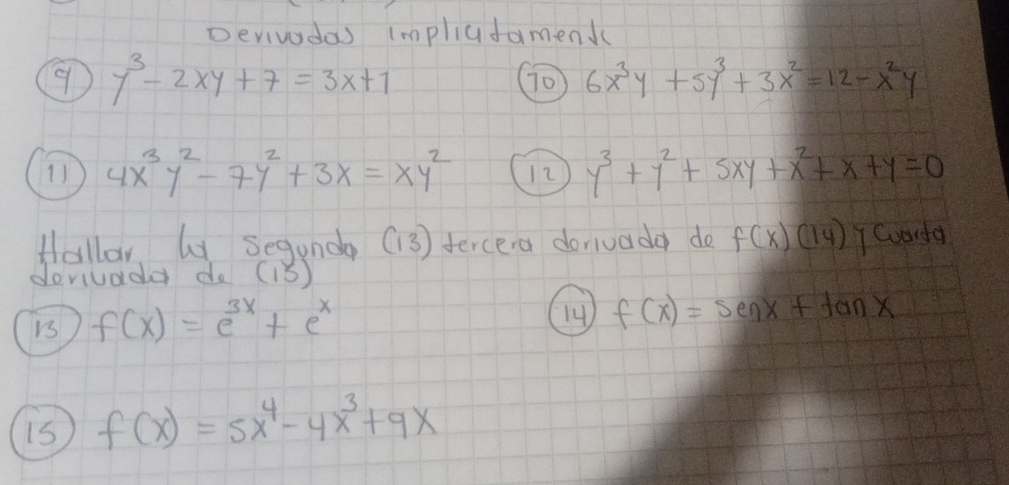 Derivadas implicitamente
(9) y³ - 2xy + 7 = 3x + 1 (10) 6x³y + 5y³ + 3x² = 12 - x²y
(11) 4x³y² - 7y² + 3x = xy² (12) y³ + y² + 5xy + x² + x + y = 0
Hallar la segunda (13) tercera derivada de f(x) (14) y cuarta
derivada de (15)
(13) f(x) = e³ˣ + eˣ (14) f(x) = senx + tan x
(15) f(x) = 5x⁴ - 4x³ + 9x